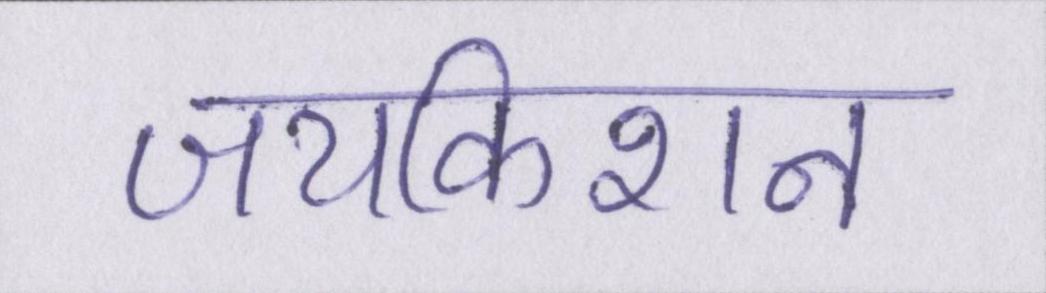 जयकिशन